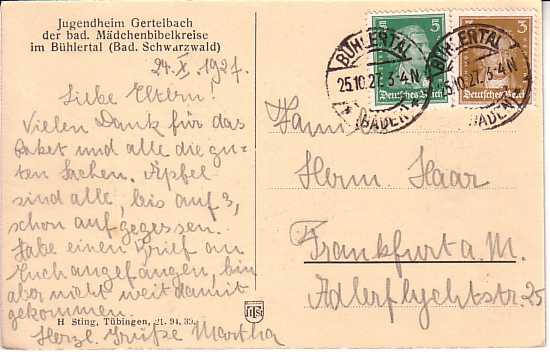 Jugendheim Gertelbach
der bad. Mädchenbibelkreise
im Bühlertal (Bad. Schwarzwald)
24. X. 1927.
Liebe Eltern!
Vielen Dank für das
Paket und alle die gu-
ten Sachen. Äpfel
sind alle, bis auf 3,
schon aufgegessen.
Habe einen Brief an
Euch angefangen, bin
aber nicht weit damit
gekommen.
Herzl. Grüße Martha
H Sting, Tübingen, 21. 94,
5
Deutsches Reich
3
Deutsches Reich
BÜHLERTAL
25.10.27. 3-4 N
(BADEN)
BÜHLERTAL
25.10.27. 3-4 N
(BADEN)
Familie
Herm. Haar
Frankfurt a. M.
Adlerflychtstr. 25